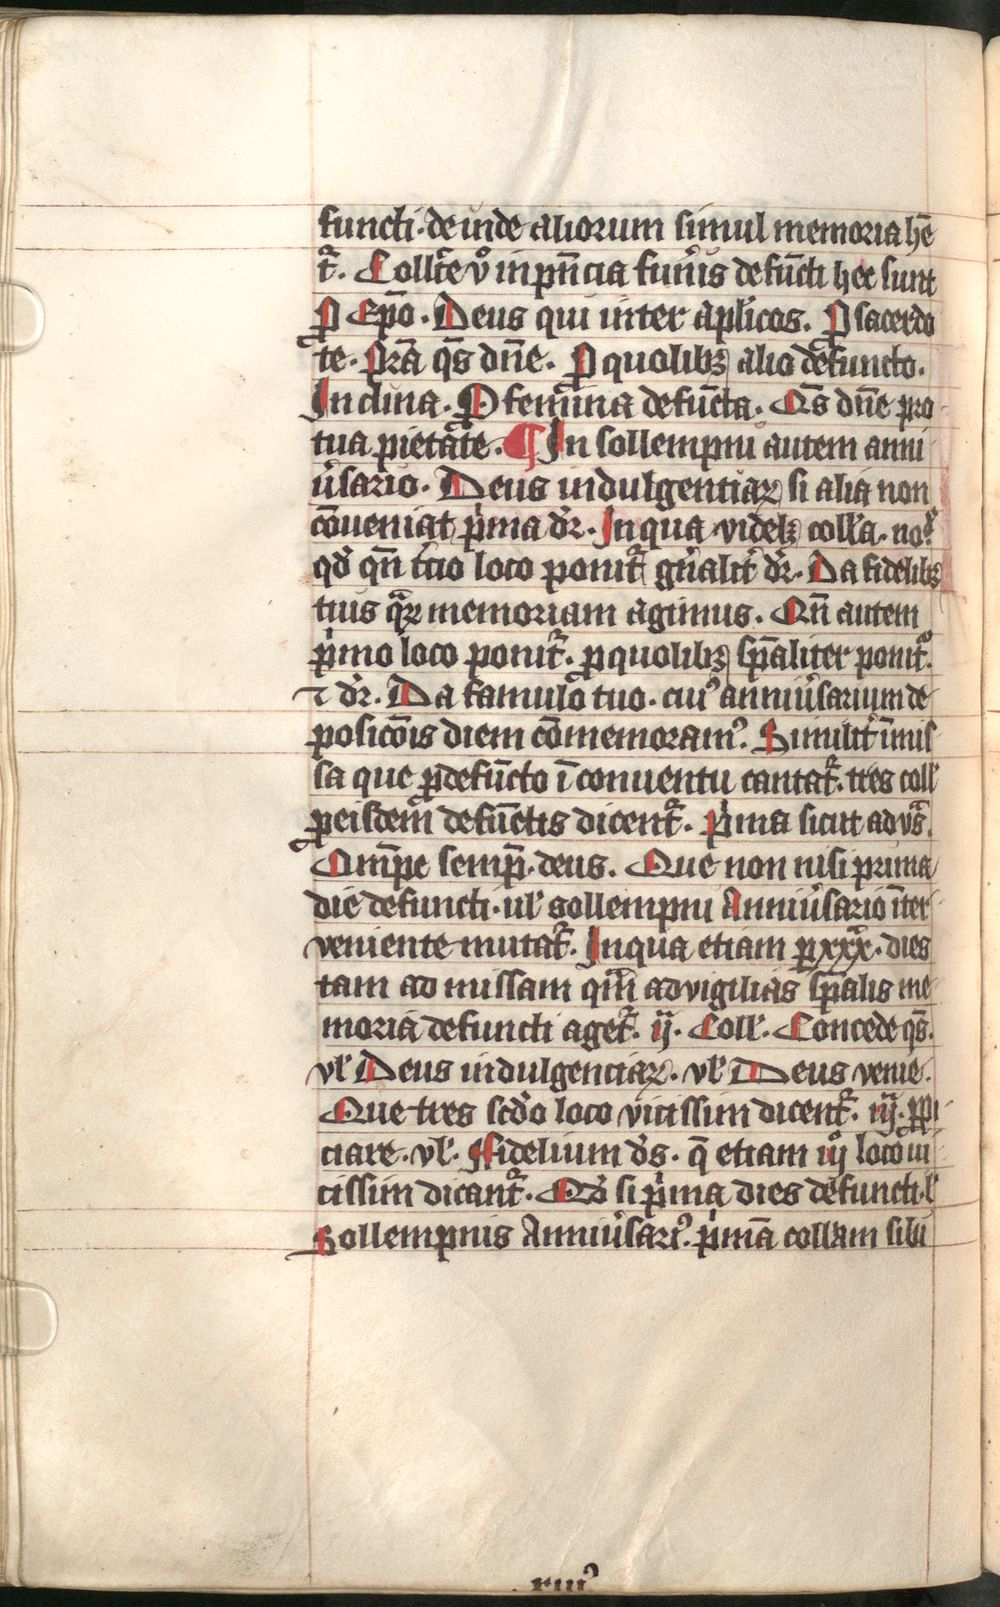 functi· deinde aliorum simul memoria hē
t᷑. Collc̄e v̊ in pn̄cia fun̾is defūcti hec sunt
ꝑ Ep̄o. Deus qui inter aplicos. ꝑ sacerdo
te. Pr̄a qs̄ dn̄e. ꝑ quolibꝫ alio defuncto.
Inclina. ꝑ femina defūcta. Qs̄ dn̄e pro
tua pietate. ¶ In sollempni autem anni
u̾sario. Deus indulgentiaꝝ si alia non
cōueniat p̾ma dr̄. In qua videlꝫ coll'a. no.
qd̾ qn̄ t̾cio loco ponit᷑ gn̾alit̾ dr̄. Da fidelibꝫ
tuis q̄ꝝ memoriam agimus. Qn̄ autem
p̾mo loco ponit᷑. ꝑ quolibꝫ sp̄aliter ponit᷑.
⁊ dr̄. Da famulo tuo. cui᷒ anniu̾sarium de
posicōis diem cōmemoram᷒. Similit̾ ī mis
sa que ꝑ defūcto ī conuentu cantat᷑. tres coll'
ꝑ eisdem defūctis dicent᷑. p̾ma sicut ad vs̄.
Omp̄e semp̄. deus. Que non nisi prima
die defuncti· ul' sollempni Anniu̾sario īter
veniente mutat᷑. In qua etiam ꝑ xxx̄. dies
tam ad missam qm̄ ad vigilias sp̄alis me
moria defuncti aget᷑. ij. Coll'. Concede qs̄.
vl' Deus indulgenciaꝝ. vl' Deus venie.
Que tres scd̾o loco vicissim dicent᷑. iij. ꝓpi
ciare. vl'. Fidelium ds̄. q̄ etiam iij̊ loco ui
cissim dicant᷑. Qd̾ si p̾ma dies defuncti· l'
Sollempnis Anniu̾sari᷒. p̾mā coll'am sibi
xiii᷒